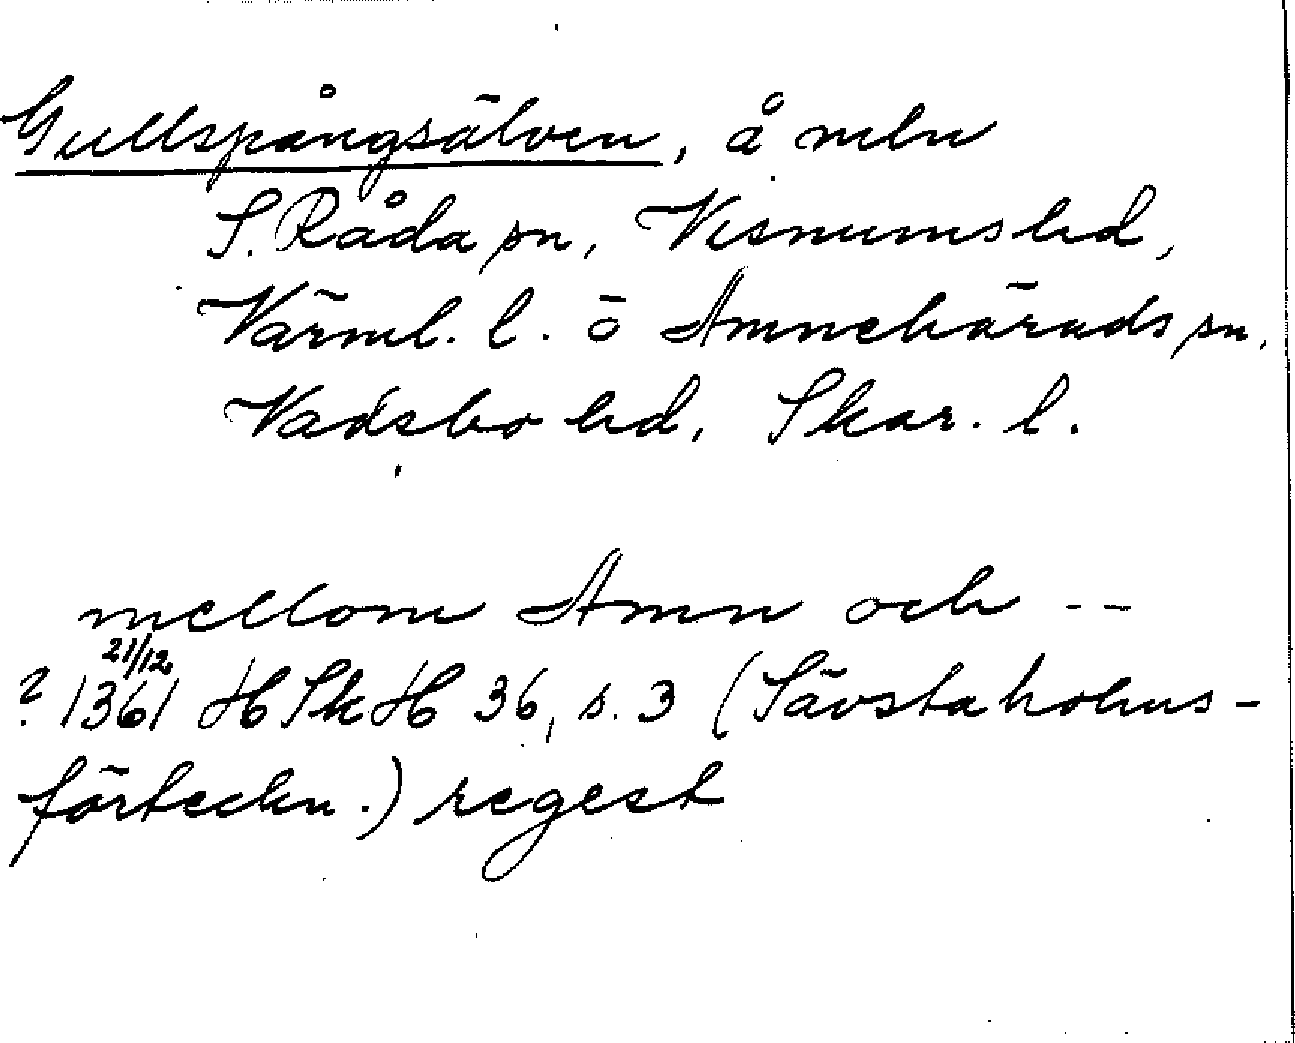 Gullspångsälven, å mln
S. Råda sn, Visnums hd,
Värml. l. o Amnehärads sn,
Vadsbo hd, Skar. l.
mellom Amn och --
21/12
? 1361 HSkH 36, s. 3 (Sävstaholms-
förteckn.) regest